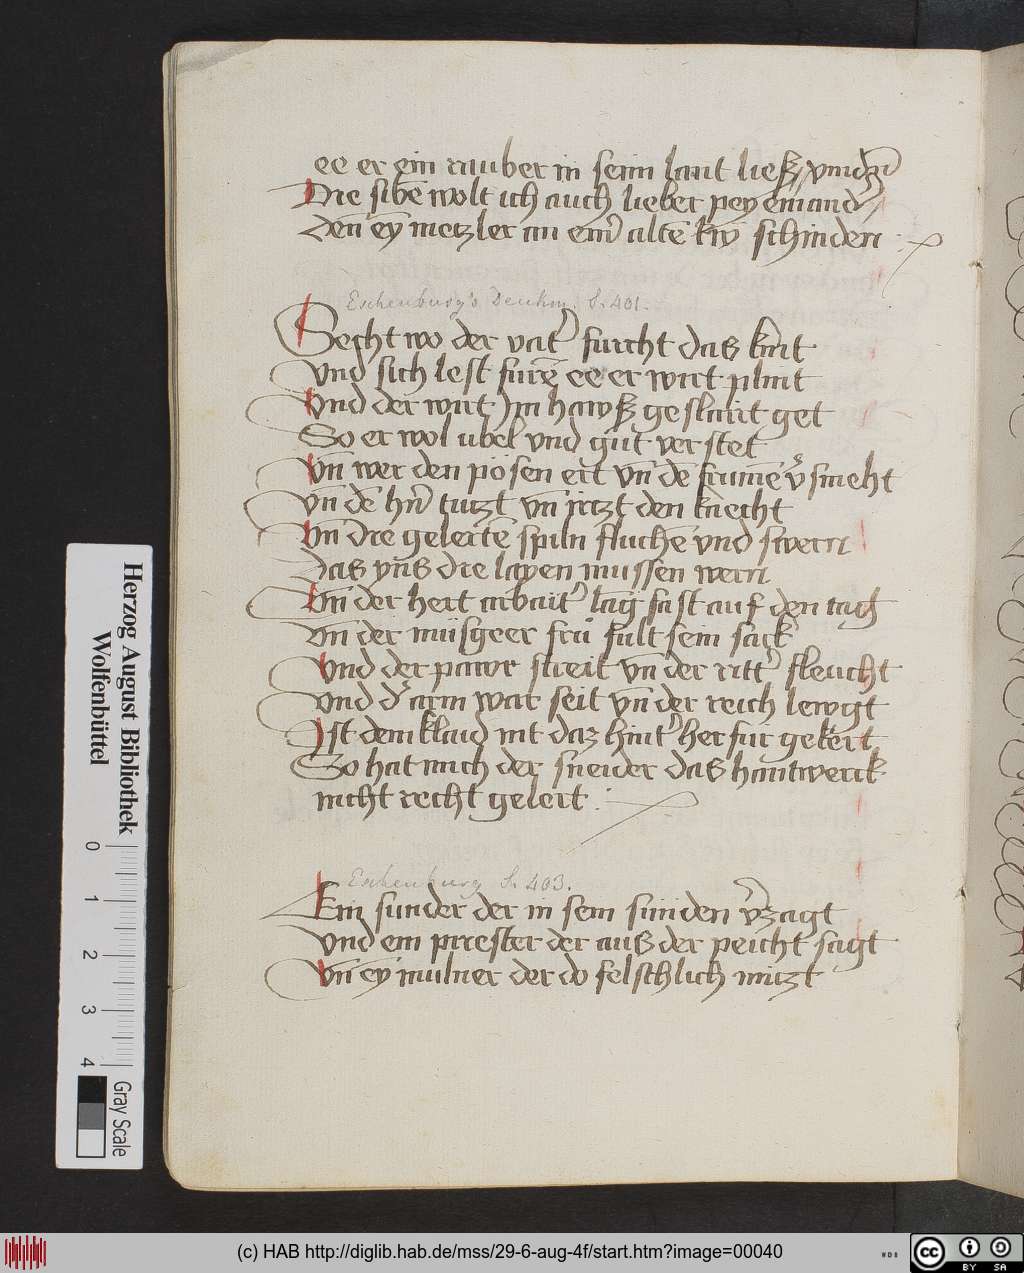 ee er ein rauber in seim lant ließ // vnd
Die sibē wolt ich auch lieber pey emand //
Den ey metzler an eim̄ altē kw̄ schinden
Eschenburg's Denkm. S. 401.
Secht wo der vat' furcht daß kint
vnd sich lest furē ee er wirt plint
vnd der wirt Jm hawß geslaut get
So er wol ubel vnd gut verstet
vn̄ wer den pösen ert vn̄ dē frumē v'smeht
vn̄ dē hr̄n tutzt vn̄ irtzt den knecht
vn̄ die gelertē spiln fluchē vnd swern
Das vns die layen mussen wern
vn̄ der hert arbait' lang fast auf den tag
vn̄ der müsgeer fru fult sein sack
vnd der pawr streit vn̄ der ritt' fleucht
vnd d' arm war seit vn̄ der reich lewgt
Ist dem klaid nit daz hint' herfur gekert
So hat mich der sneider das hantwerck
nicht recht gelert
Eschenburg S. 403.
Ein sunder der in sein sunden v'zagt
vnd ein priester der auß der peicht sagt
vn̄ ey mulner der do felschlich mitzt
Herzog August Bibliothek
Wolfenbüttel
0 1 2 3 4
Gray Scale
(c) HAB http://diglib.hab.de/mss/29-6-aug-4f/start.htm?image=00040
WDB
cc BY SA